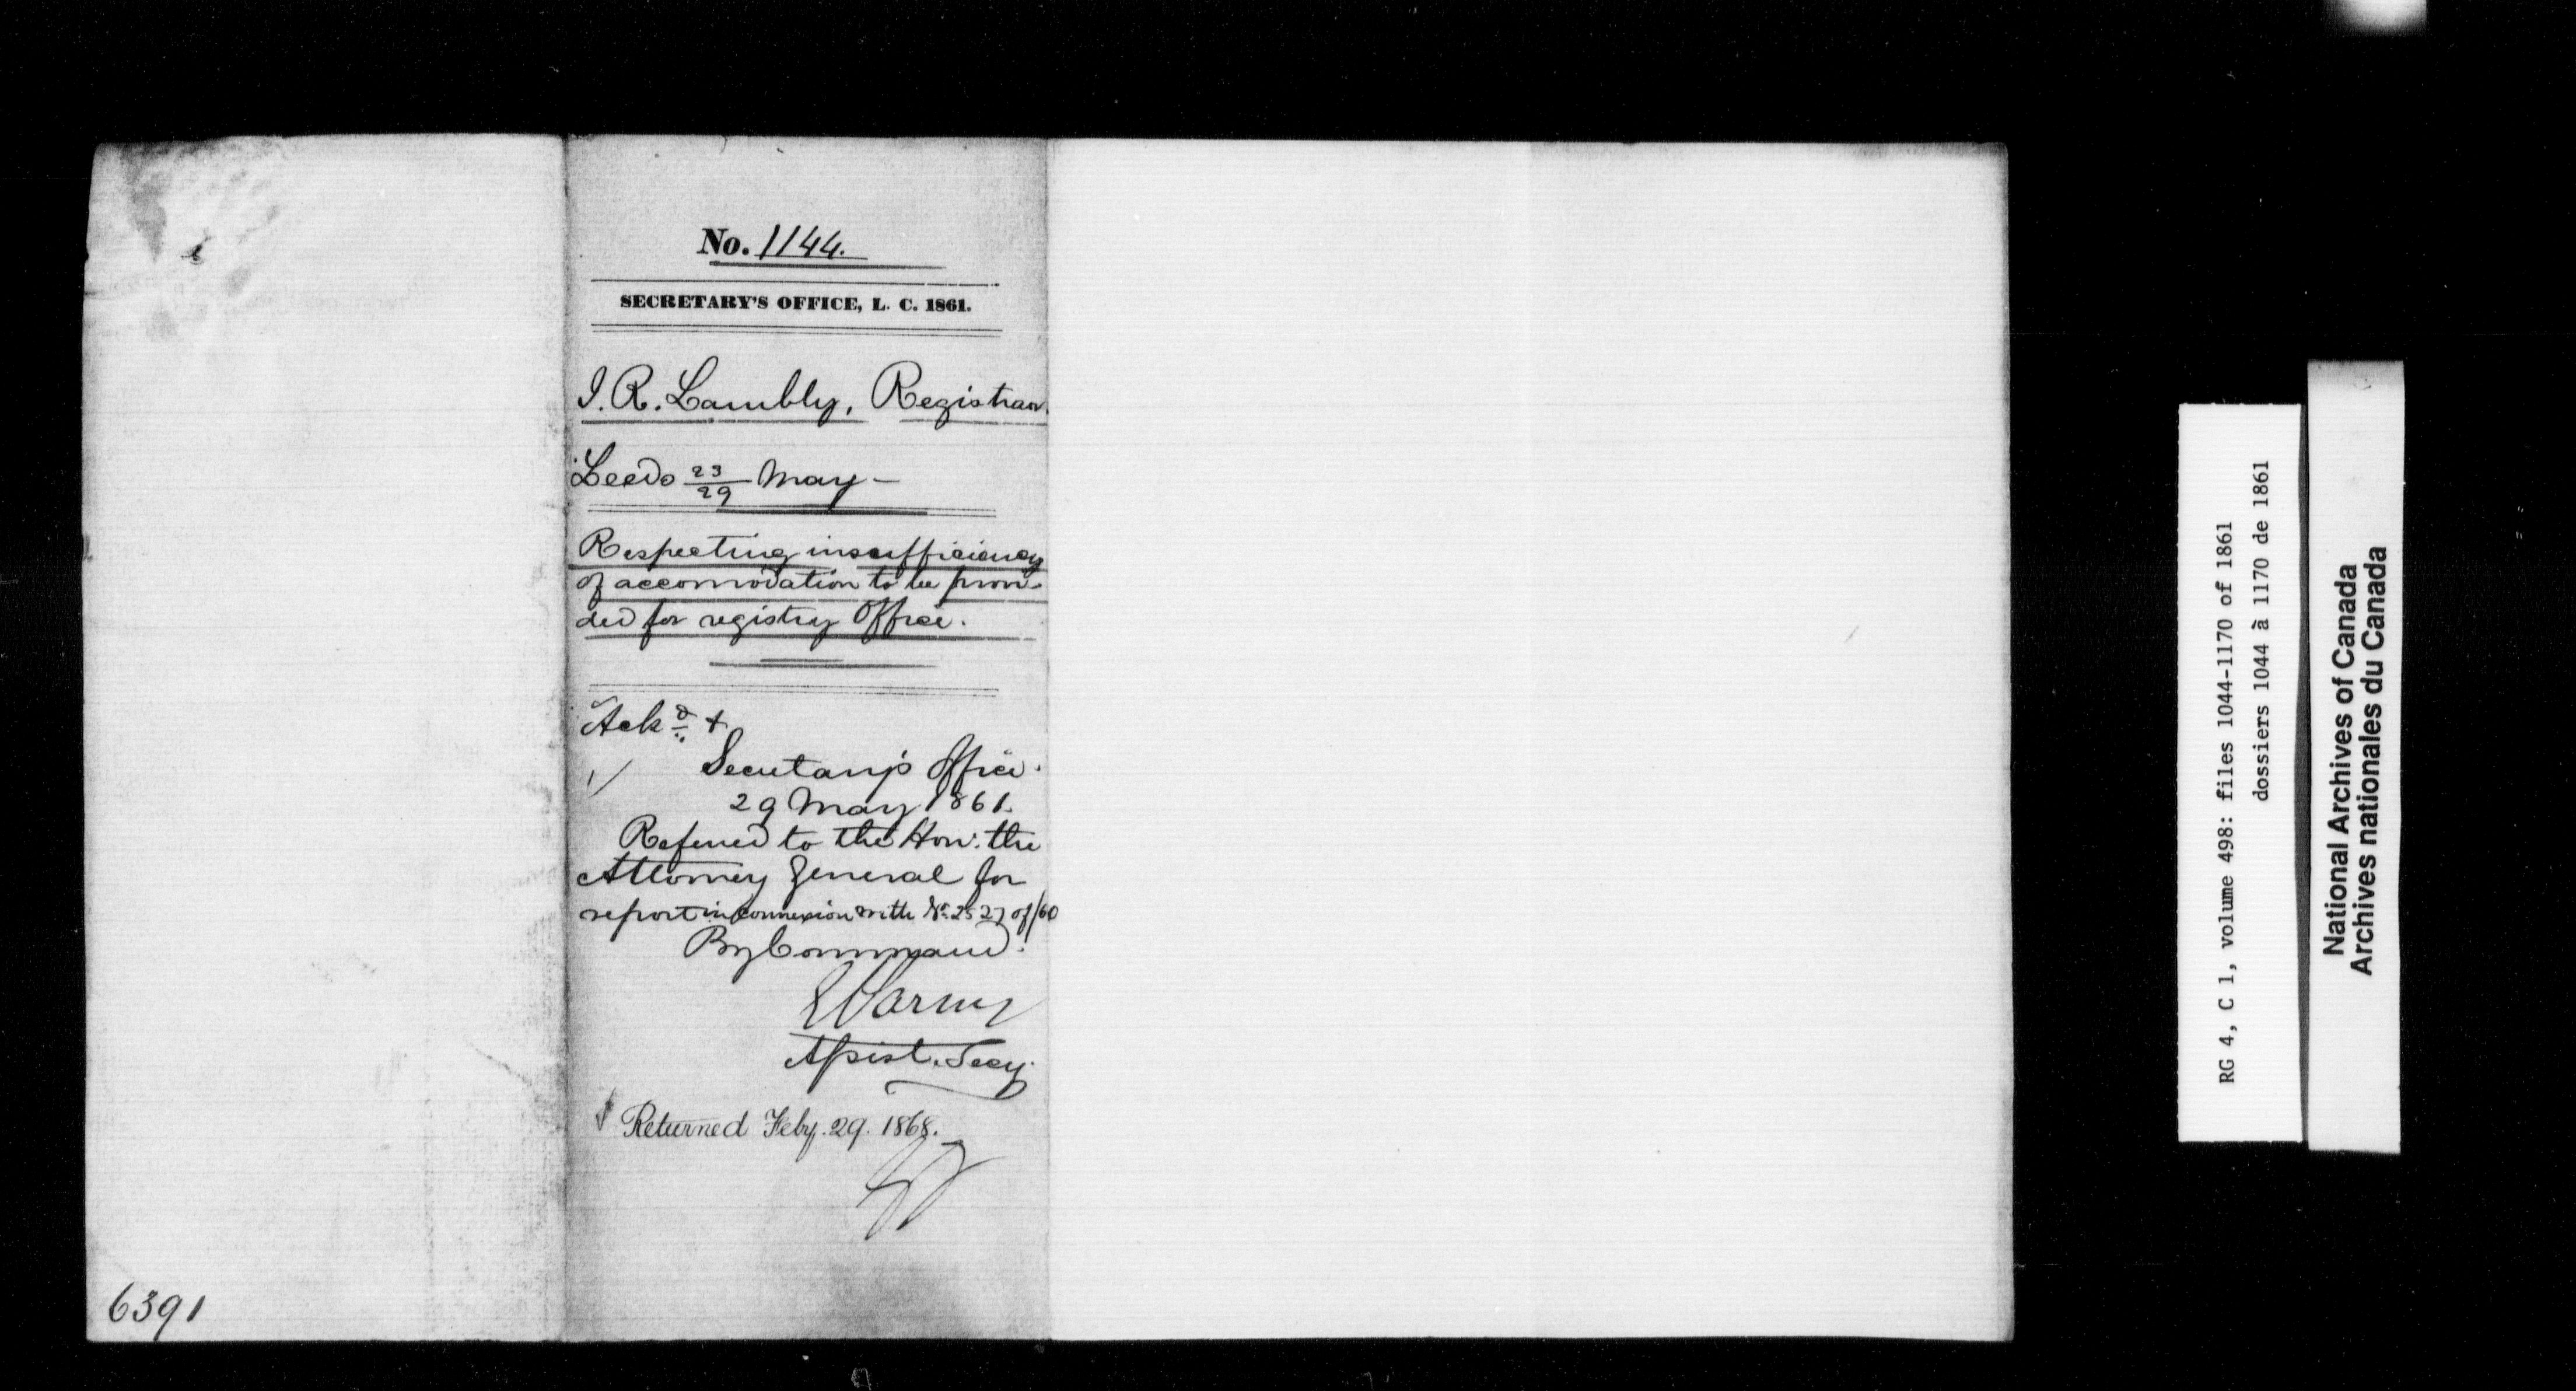 No. 1144.
SECRETARY'S OFFICE, L. C. 1861.
I. R. Lambly, Registrar
Leeds 23/29 May —
Respecting insufficiency
of accomodation to be provi-
ded for registry Office.
Ackd +
Secretary's Office.
29 May 1861.
Referred to the Hon: the
Attorney General for
report in connexion with No. 2527 of/60
By Command.
Assist. Secy.
Returned Feby. 29. 1868.
6391
RG 4, C 1, volume 498: files 1044-1170 of 1861
dossiers 1044 à 1170 de 1861
National Archives of Canada
Archives nationales du Canada